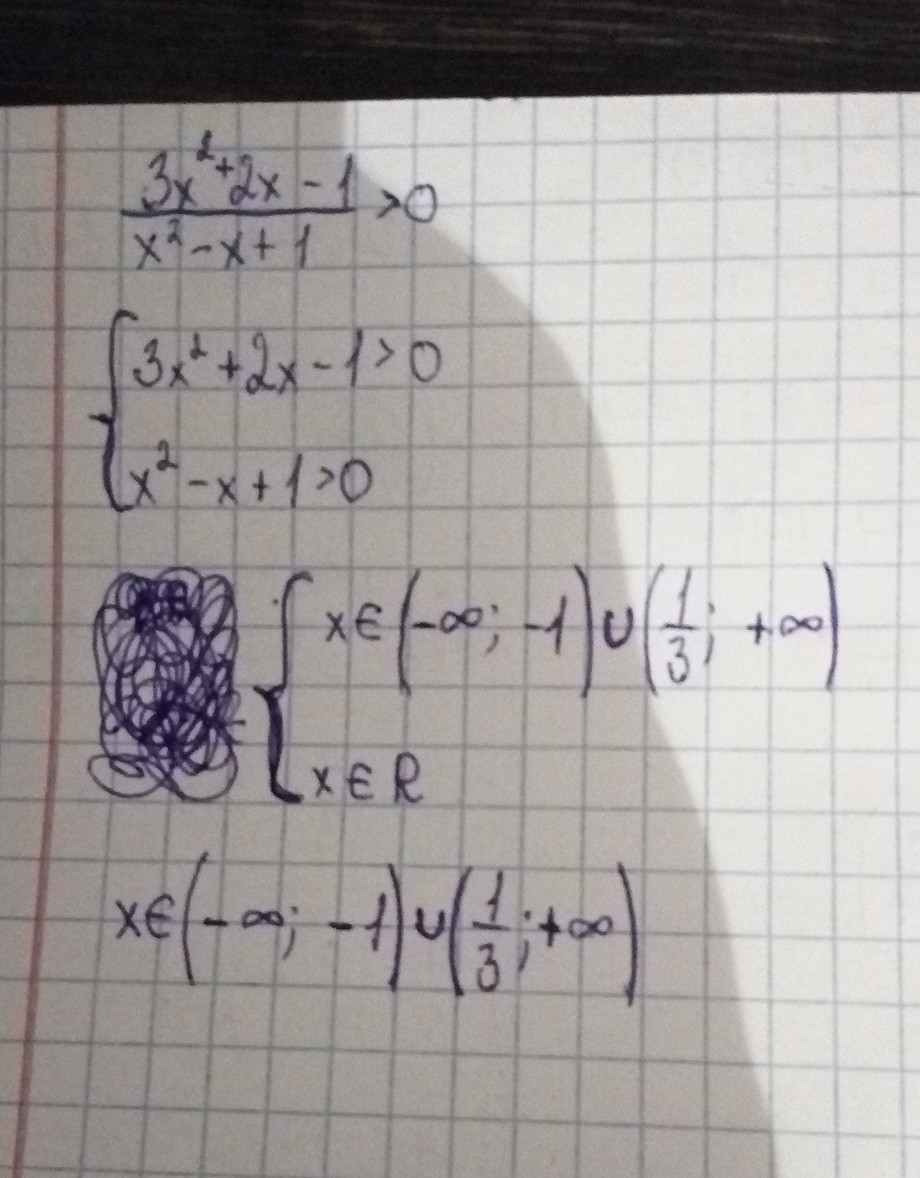 3x²+2x-1
x²-x+1 >0
3x²+2x-1>0
x²-x+1>0
x∈(-∞; -1)∪(1/3; +∞)
x∈R
x∈(-∞; -1)∪(1/3;+∞)